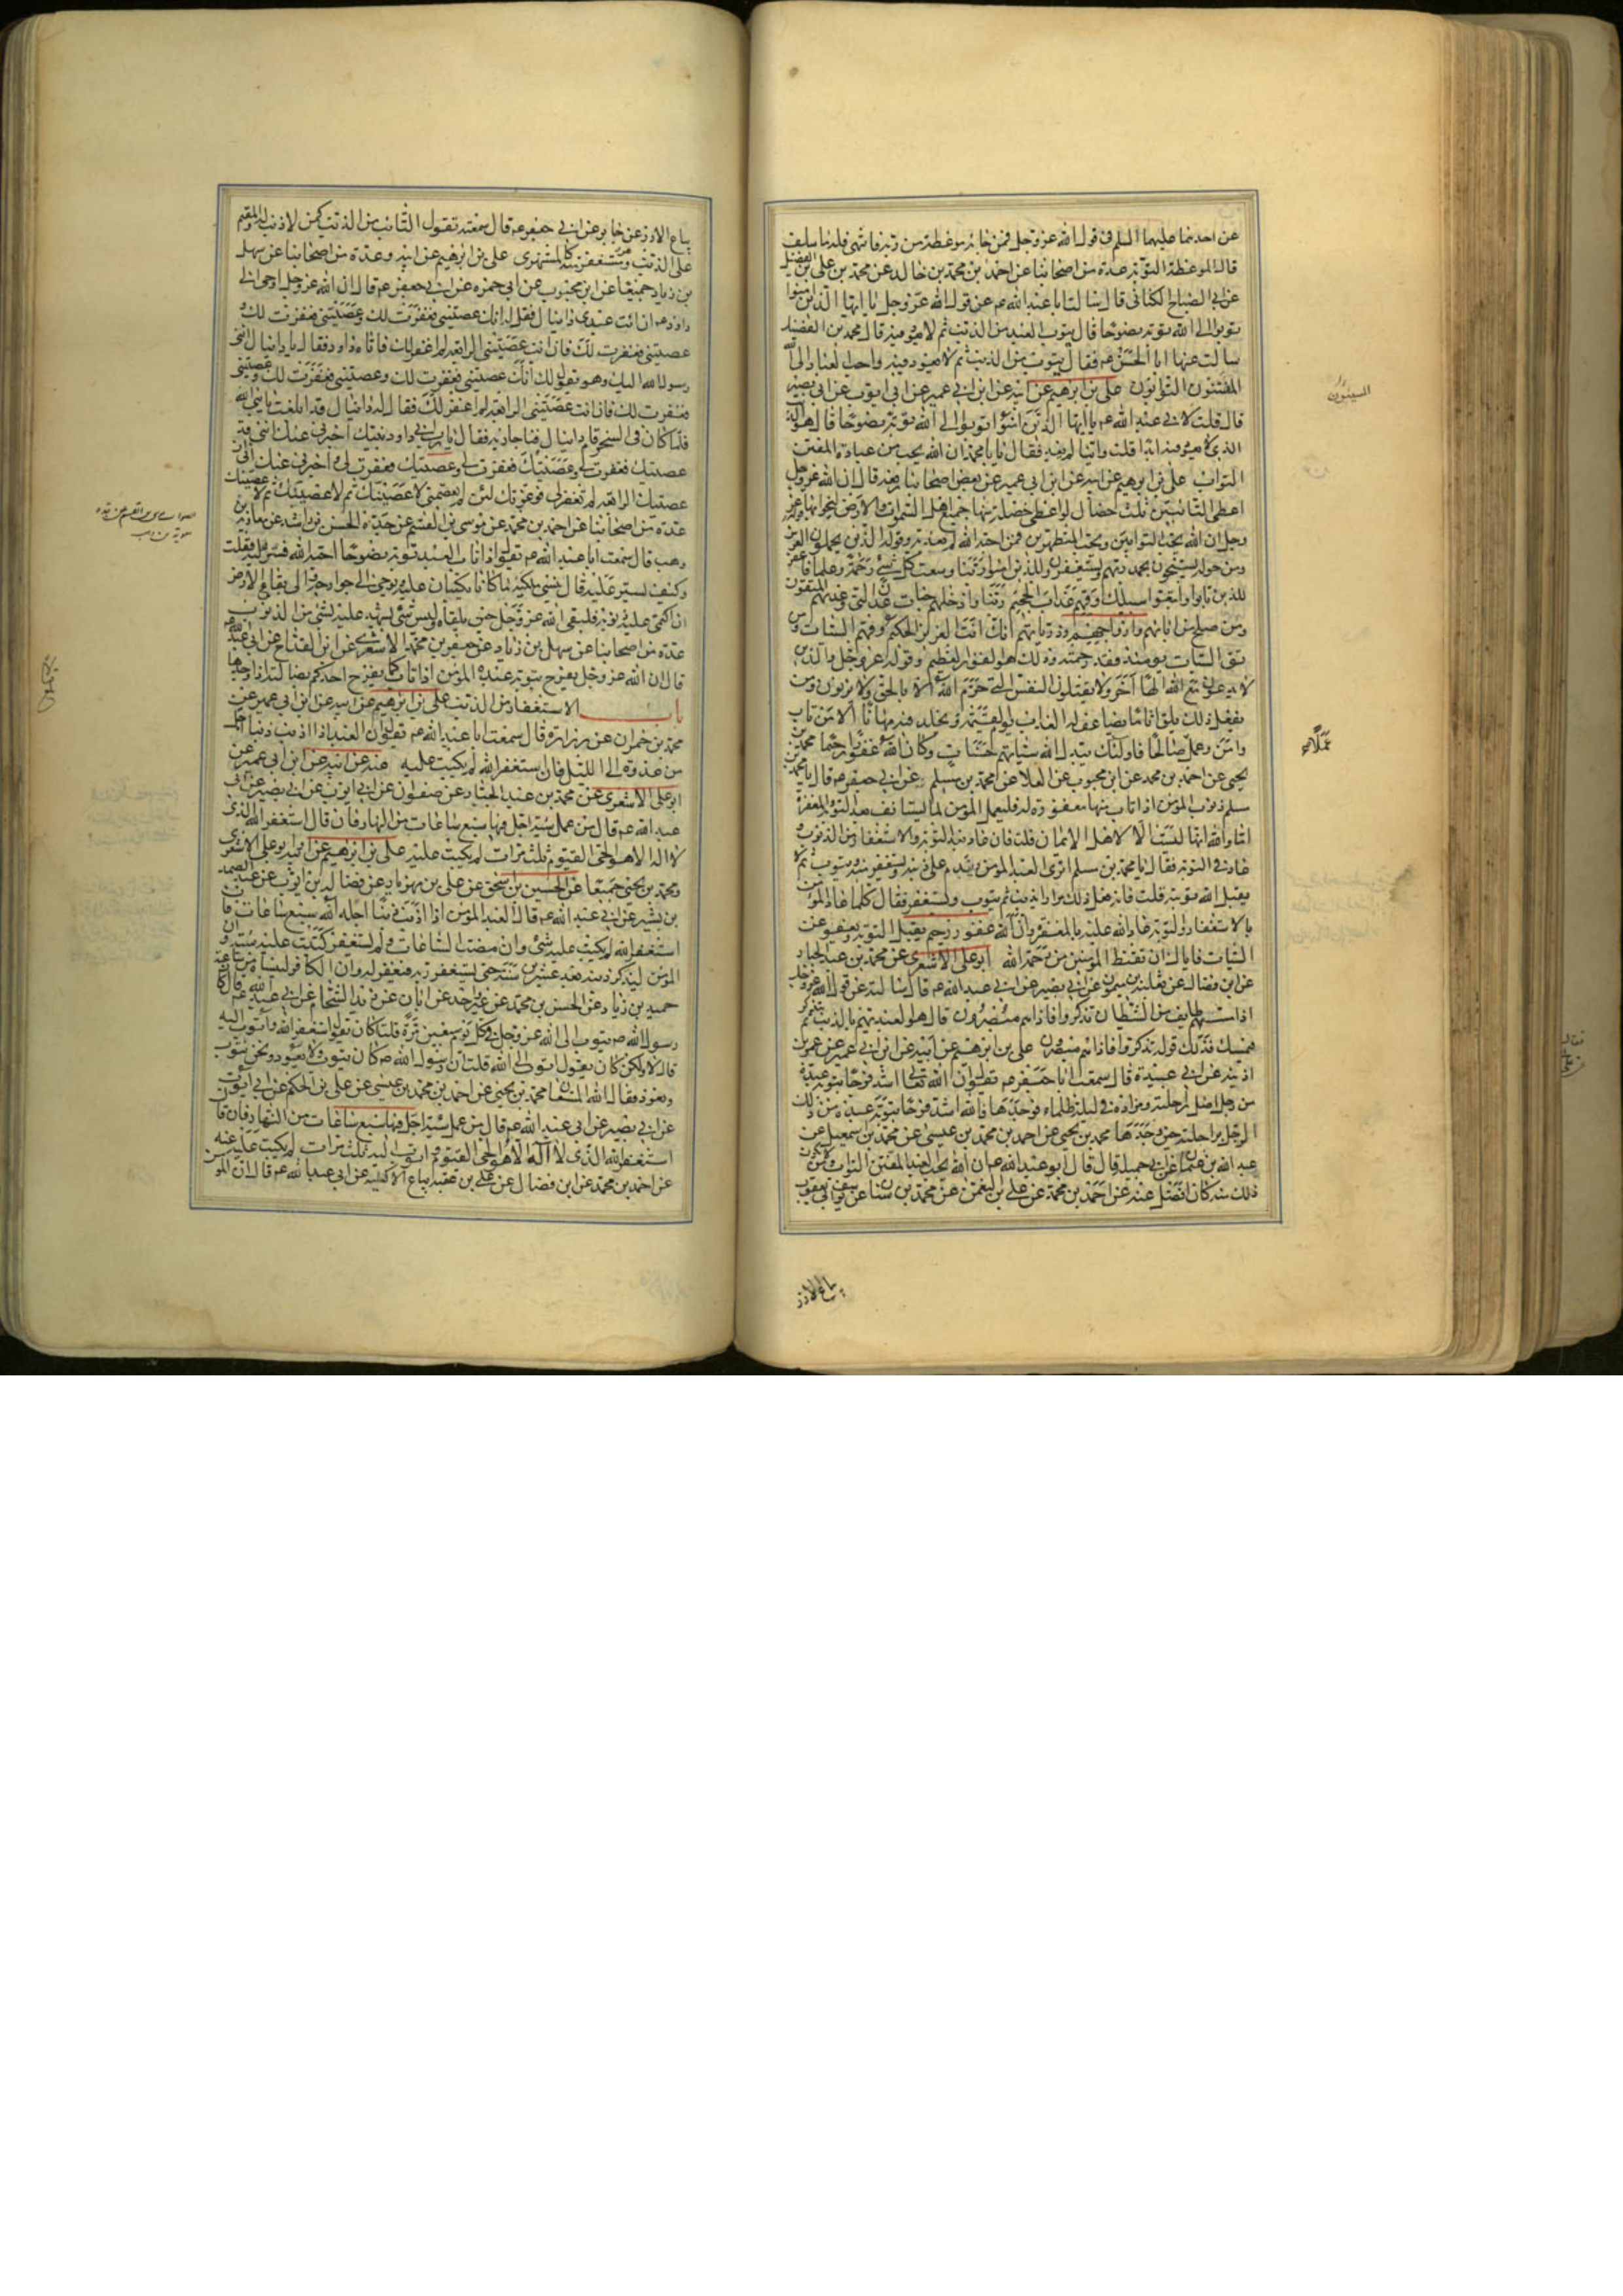 عن احدهما عليهما السلم في قول الله عز وجل فمن جاءه موعظة من ربه فانتهى فله ما سلف
قال الموعظة التوبة عدة من اصحابنا عن احمد بن محمد بن خالد عن محمد بن علي عن محمد بن الفضيل
عن ابي الصباح الكناني قال سالت ابا عبد الله عم عن قول الله عز وجل يا ايها الذين امنوا
توبوا الى الله توبة نصوحا قال يتوب العبد من الذنب ثم لا يعود فيه قال محمد بن الفضيل
سالت عنها ابا الحسن عم فقال يتوب من الذنب ثم لا يعود فيه واحب العباد الى الله
المفتنون التوابون علي بن ابرهيم عن ابيه عن ابن ابي عمير عن ابي ايوب عن ابي بصير
قال قلت لابي عبد الله عم يا ايها الذين امنوا توبوا الى الله توبة نصوحا قال هو الذنب
الذي لا يعود فيه ابدا قلت واينا لم يعد فقال يا با محمد ان الله يحب من عباده المفتن
التواب علي بن ابرهيم عن ابيه عن ابن ابي عمير عن بعض اصحابنا رفعه قال ان الله عز وجل
اعطى التائبين ثلث خصال لو اعطى خصلة منها جميع اهل السموات والارض لنجوا بها قوله عز
وجل ان الله يحب التوابين ويحب المتطهرين فمن احبه الله لم يعذبه وقوله الذين يحملون العرش
ومن حوله يسبحون بحمد ربهم ويستغفرون للذين امنوا ربنا وسعت كل شيء رحمة وعلما فاغفر
للذين تابوا واتبعوا سبيلك وقهم عذاب الجحيم ربنا وادخلهم جنات عدن التي وعدتهم
ومن صلح من ابائهم وازواجهم وذرياتهم انك انت العزيز الحكيم وقهم السيئات ومن
تق السيئات يومئذ فقد رحمته وذلك هو الفوز العظيم وقوله عز وجل والذين
لا يدعون مع الله الها اخر ولا يقتلون النفس التي حرم الله الا بالحق ولا يزنون ومن
يفعل ذلك يلق اثاما يضاعف له العذاب يوم القيمة ويخلد فيه مهانا الا من تاب
وامن وعمل صالحا فاولئك يبدل الله سيئاتهم حسنات وكان الله غفورا رحيما محمد بن
يحيى عن احمد بن محمد عن ابن محبوب عن العلا عن محمد بن مسلم عن ابي جعفر عم قال يا محمد بن
مسلم ذنوب المؤمن اذا تاب منها مغفورة له فليعمل المؤمن لما يستانف بعد التوبة والمغفرة
اما والله انها ليست الا لاهل الايمان قلت فان عاد بعد التوبة والاستغفار من الذنوب و
عاد في التوبة فقال يا محمد بن مسلم اترى العبد المؤمن يندم على ذنبه ويستغفر منه ويتوب ثم لا
يقبل الله توبته قلت فانه فعل ذلك مرارا يذنب ثم يتوب ويستغفر فقال كلما عاد المؤمن
بالاستغفار والتوبة عاد الله عليه بالمغفرة وان الله غفور رحيم يقبل التوبة ويعفو عن
السيئات فاياك ان تقنط المؤمنين من رحمة الله ابو علي الاشعري عن محمد بن عبد الجبار
عن ابن فضال عن ثعلبة بن ميمون عن ابي بصير عن ابي عبد الله عم قال سالته عن قول الله عز وجل
اذا مسهم طايف من الشيطان تذكروا فاذا هم مبصرون قال هو العبد يهم بالذنب ثم يتذكر
فيمسك فذلك قوله تذكروا فاذا هم مبصرون علي بن ابرهيم عن ابيه عن ابن ابي عمير عن عمر بن
اذينة عن ابي عبيدة قال سمعت ابا جعفر عم يقول ان الله تعالى اشد فرحا بتوبة عبده
من رجل اضل راحلته ومزاده في ليلة ظلماء فوجدها فالله اشد فرحا بتوبة عبده من ذلك
الرجل براحلته حين وجدها محمد بن يحيى عن احمد بن محمد بن عيسى عن محمد بن اسمعيل عن
عبد الله بن عثمان عن ابي جميلة قال قال ابو عبد الله عم ان الله يحب العبد المفتن التواب ومن لا يكون
ذلك منه كان افضل عنه عن احمد بن محمد عن علي بن النعمن عن محمد بن سنان عن يوسف ابي يعقوب
بياع الارز
عملا
بياع الارز عن جابر عن ابي جعفر عم قال سمعته يقول التائب من الذنب كمن لا ذنب له والمقيم
على الذنب وهو مستغفر منه كالمستهزئ علي بن ابرهيم عن ابيه وعدة من اصحابنا عن سهل
بن زياد جميعا عن ابن محبوب عن ابي حمزة عن ابي جعفر عم قال ان الله عز وجل اوحى الى
داود عم ان ائت عبدي دانيال فقل له انك عصيتني فغفرت لك وعصيتني فغفرت لك و
عصيتني فغفرت لك فان انت عصيتني الرابعة لم اغفر لك فاتاه داود فقال يا دانيال انني
رسول الله اليك وهو يقول لك انك عصيتني فغفرت لك وعصيتني فغفرت لك وعصيتني
فغفرت لك فان انت عصيتني الرابعة لم اغفر لك فقال له دانيال قد ابلغت يا نبي الله
فلما كان في السحر قام دانيال فناجا ربه فقال يا رب ان داود نبيك اخبرني عنك انني قد
عصيتك فغفرت لي وعصيتك فغفرت لي وعصيتك فغفرت لي واخبرني عنك انني ان
عصيتك الرابعة لم تغفر لي فوعزتك لئن لم تعصمني لاعصينك ثم لاعصينك ثم لاعصينك
عدة من اصحابنا عن احمد بن محمد عن موسى بن القسم عن جده الحسن بن راشد عن معاوية بن
وهب قال سمعت ابا عبد الله عم يقول اذا تاب العبد توبة نصوحا احبه الله فستر عليه فقلت
وكيف يستر عليه قال ينسي ملكيه ما كانا يكتبان عليه ويوحي الى جوارحه والى بقاع الارض
ان اكتمي عليه ذنوبه فيلقى الله عز وجل حين يلقاه وليس شيء يشهد عليه بشيء من الذنوب
عدة من اصحابنا عن سهل بن زياد عن جعفر بن محمد الاشعري عن ابن القداح عن ابي عبد الله عم
قال ان الله عز وجل يفرح بتوبة عبده المؤمن اذا تاب كما يفرح احدكم بضالته اذا وجدها
باب الاستغفار من الذنب علي بن ابرهيم عن ابيه عن ابن ابي عمير عن
محمد بن حمران عن زرارة قال سمعت ابا عبد الله عم يقول ان العبد اذا اذنب ذنبا اجل
من غدوة الى الليل فان استغفر الله لم يكتب عليه عنه عن ابيه عن ابن ابي عمير عن
ابو علي الاشعري عن محمد بن عبد الجبار عن صفوان عن ابي ايوب عن ابي بصير عن ابي
عبد الله عم قال من عمل سيئة اجل فيها سبع ساعات من النهار فان قال استغفر الله الذي
لا اله الا هو الحي القيوم ثلث مرات لم يكتب عليه علي بن ابرهيم عن ابيه وابو علي الاشعري
ومحمد بن يحيى جميعا عن الحسين بن اسحق عن علي بن مهزيار عن فضالة بن ايوب عن عبد الصمد
بن بشير عن ابي عبد الله عم قال العبد المؤمن اذا اذنب ذنبا اجله الله سبع ساعات فان
استغفر الله لم يكتب عليه شيء وان مضت الساعات ولم يستغفر كتبت عليه سيئة وان
المؤمن ليذكر ذنبه بعد عشرين سنة حتى يستغفر ربه فيغفر له وان الكافر لينساه من ساعته
حميد بن زياد عن الحسن بن محمد عن غير واحد عن ابان عن زيد الشحام عن ابي عبد الله عم قال كان
رسول الله ص يتوب الى الله عز وجل في كل يوم سبعين مرة قلت اكان يقول استغفر الله واتوب اليه
قال لا ولكن كان يقول اتوب الى الله قلت ان رسول الله ص كان يتوب ولا يعود ونحن نتوب
ونعود فقال الله المستعان محمد بن يحيى عن احمد بن محمد بن عيسى عن علي بن الحكم عن ابي ايوب
عن ابي بصير عن ابي عبد الله عم قال من عمل سيئة اجل فيها سبع ساعات من النهار فان قال
استغفر الله الذي لا اله الا هو الحي القيوم واتوب اليه ثلث مرات لم يكتب عليه عنه
عن احمد بن محمد عن ابن فضال عن علي بن عقبة بياع الاكسية عن ابي عبد الله عم قال ان المؤمن